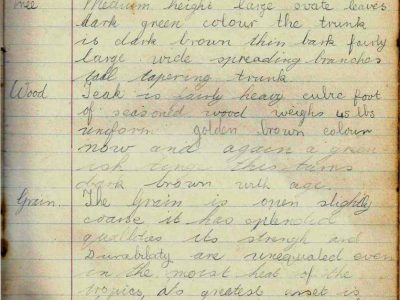 Tree Medium height large ovate leaves
dark green colour the trunk
is dark brown thin bark fairly
large wide spreading branches
tall tapering trunk
Wood Teak is fairly heavy cubic foot
of seasoned wood weighs 45 lbs
uniform golden brown colour
now and again a green
ish tinge this turns
dark brown with age.
Grain. The Grain is even slightly
coarse it has splendid
qualities its strength and
Durability are unequaled even
in the moist heat of the
tropics, its greatest asset is